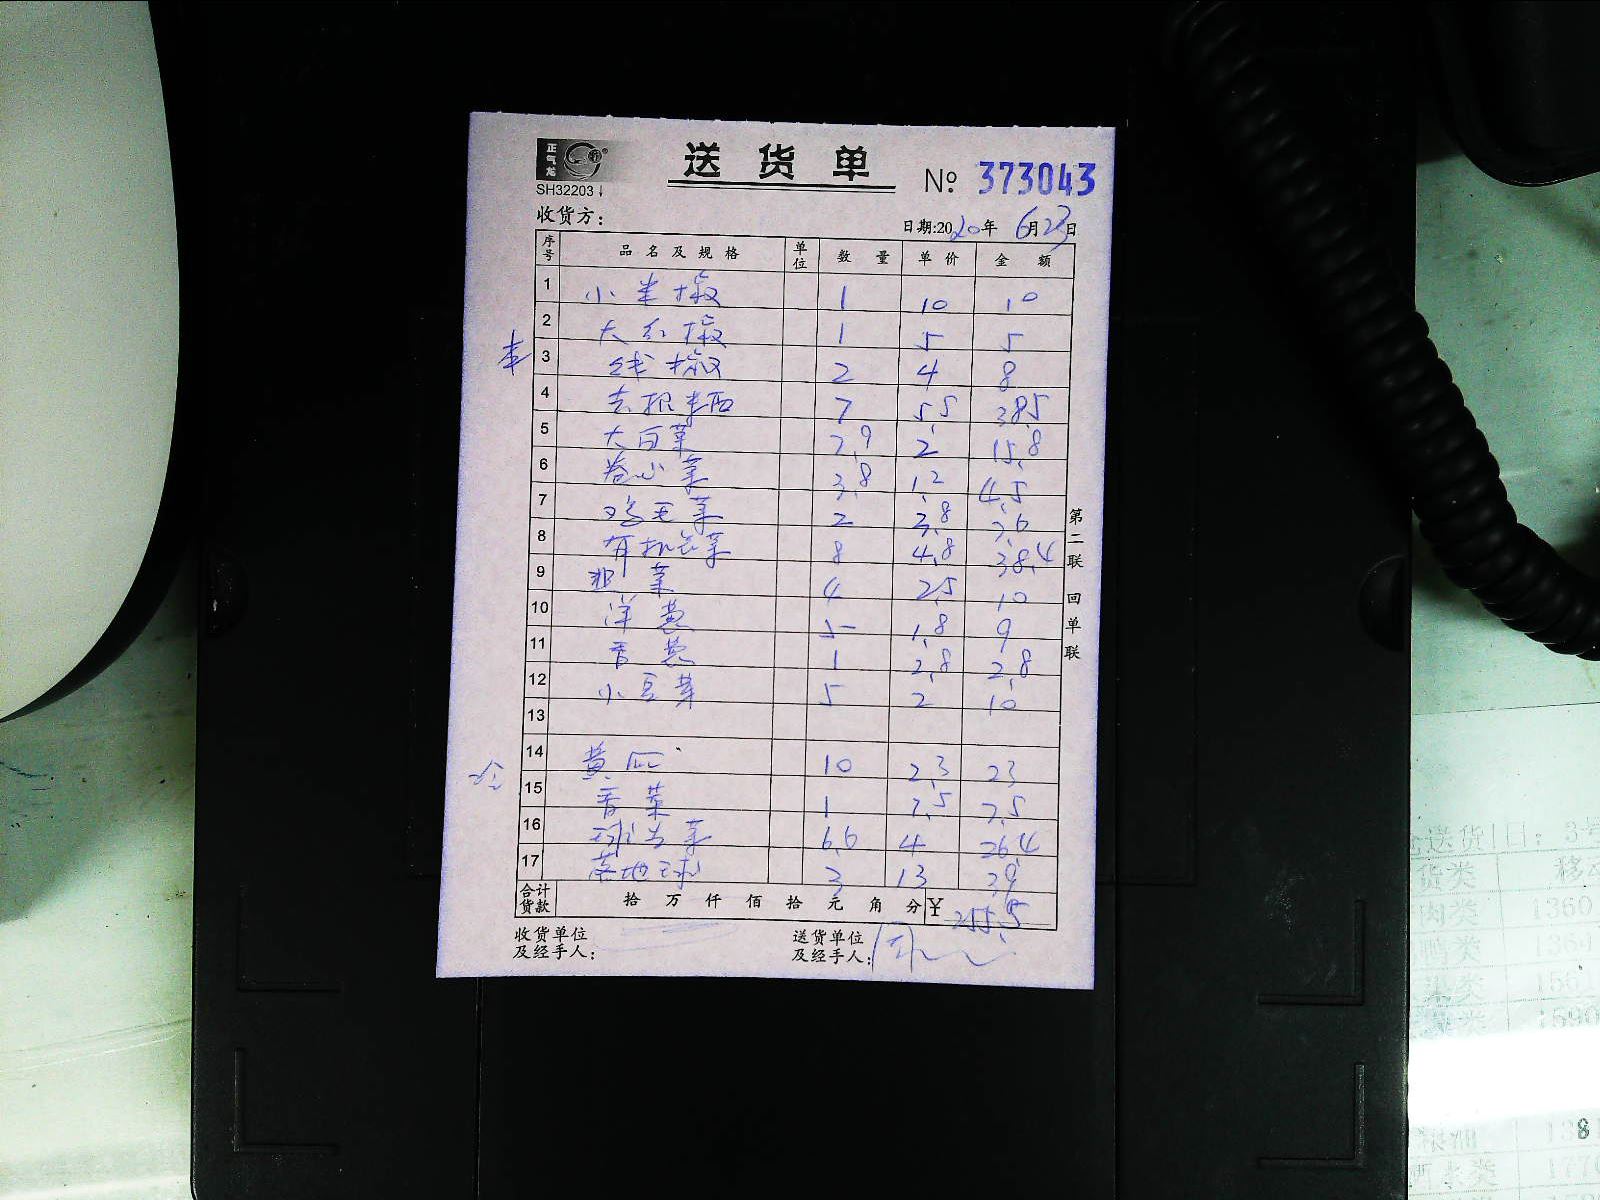 正气龙
SH32203
送货单
№ 373043
收货方：
日期:2020年 6月23日
序号 品名及规格 单位 数量 单价 金额
1 小米椒 1 10 10
2 大红椒 1 5 5
3 线椒 2 4 8
4 去根本西 7 5.5 38.5
5 大白菜 7.9 2 15.8
6 卷心菜 3.8 1.2 4.5
7 鸡毛菜 2 3.8 7.6
8 有机花菜 8 4.8 38.4
9 韭菜 4 2.5 10
10 洋葱 5 1.8 9
11 香葱 1 2.8 2.8
12 小豆芽 5 2 10
13
14 黄瓜 10 2.3 23
15 香菜 1 7.5 7.5
16 球生菜 6.6 4 26.4
17 落地球 3 13 39
合计货款 拾 万 仟 佰 拾 元 角 分 ¥ 255.5
收货单位及经手人：
送货单位及经手人：
第二联 回单联
送货日：3号
货类 移动
肉类 1360
鸭类